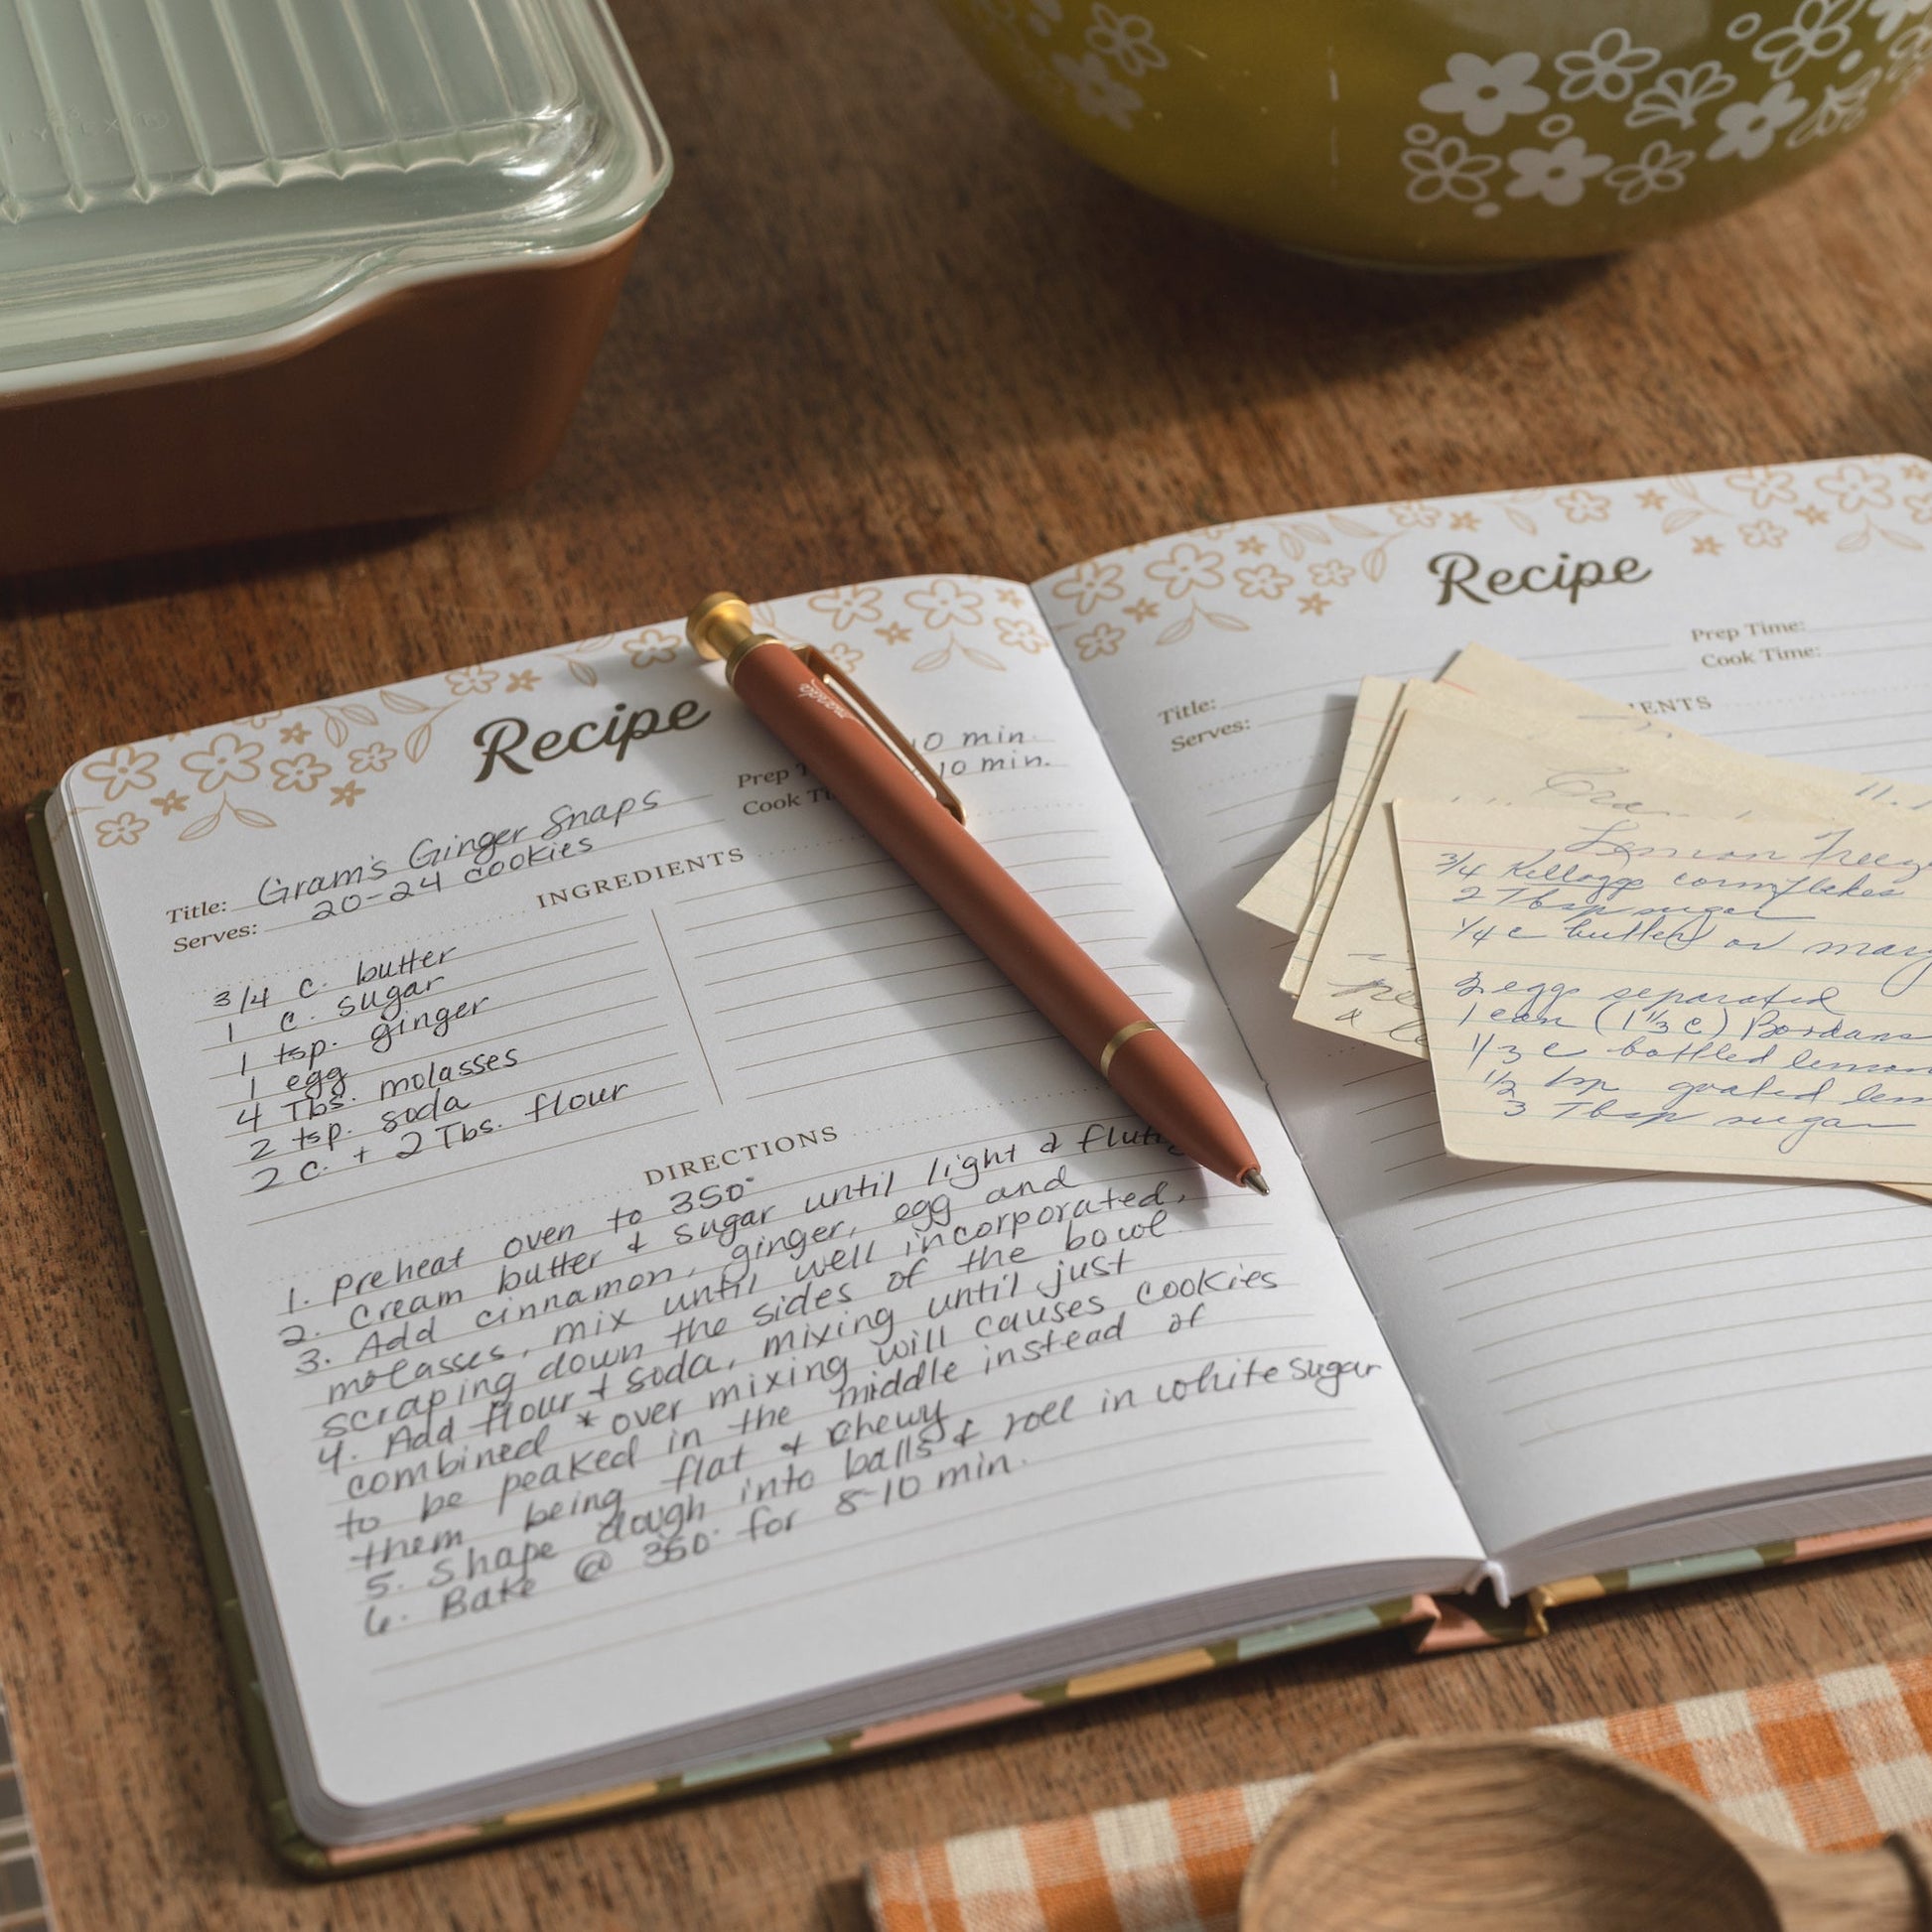 PYREX
Recipe
Prep T
0 min.
Cook Ti
10 min.
Title: Gram's Ginger Snaps
Serves: 20-24 cookies
INGREDIENTS
3/4 c. butter
1 c. sugar
1 tsp. ginger
1 egg
4 Tbs. molasses
2 tsp. soda
2 c. + 2 Tbs. flour
DIRECTIONS
1. Preheat oven to 350°
2. Cream butter & sugar until light & fluffy
3. Add cinnamon, ginger, egg and
molasses, mix until well incorporated,
scraping down the sides of the bowl
4. Add flour & soda, mixing until just
combined * over mixing will causes cookies
to be peaked in the middle instead of
them being flat & chewy
5. Shape dough into balls & roll in white sugar
6. Bake @ 350° for 8-10 min.
Recipe
Prep Time:
Cook Time:
Title:
Serves:
ENTS
Lemon Freez
3/4 Kelloggs cornflakes
2 Tbsp sugar
1/4 c butter or marg
2 eggs separated
1 can (1 1/3 c) Bordans
1/3 c bottled lemon
1/2 tsp grated lem
3 Tbsp sugar